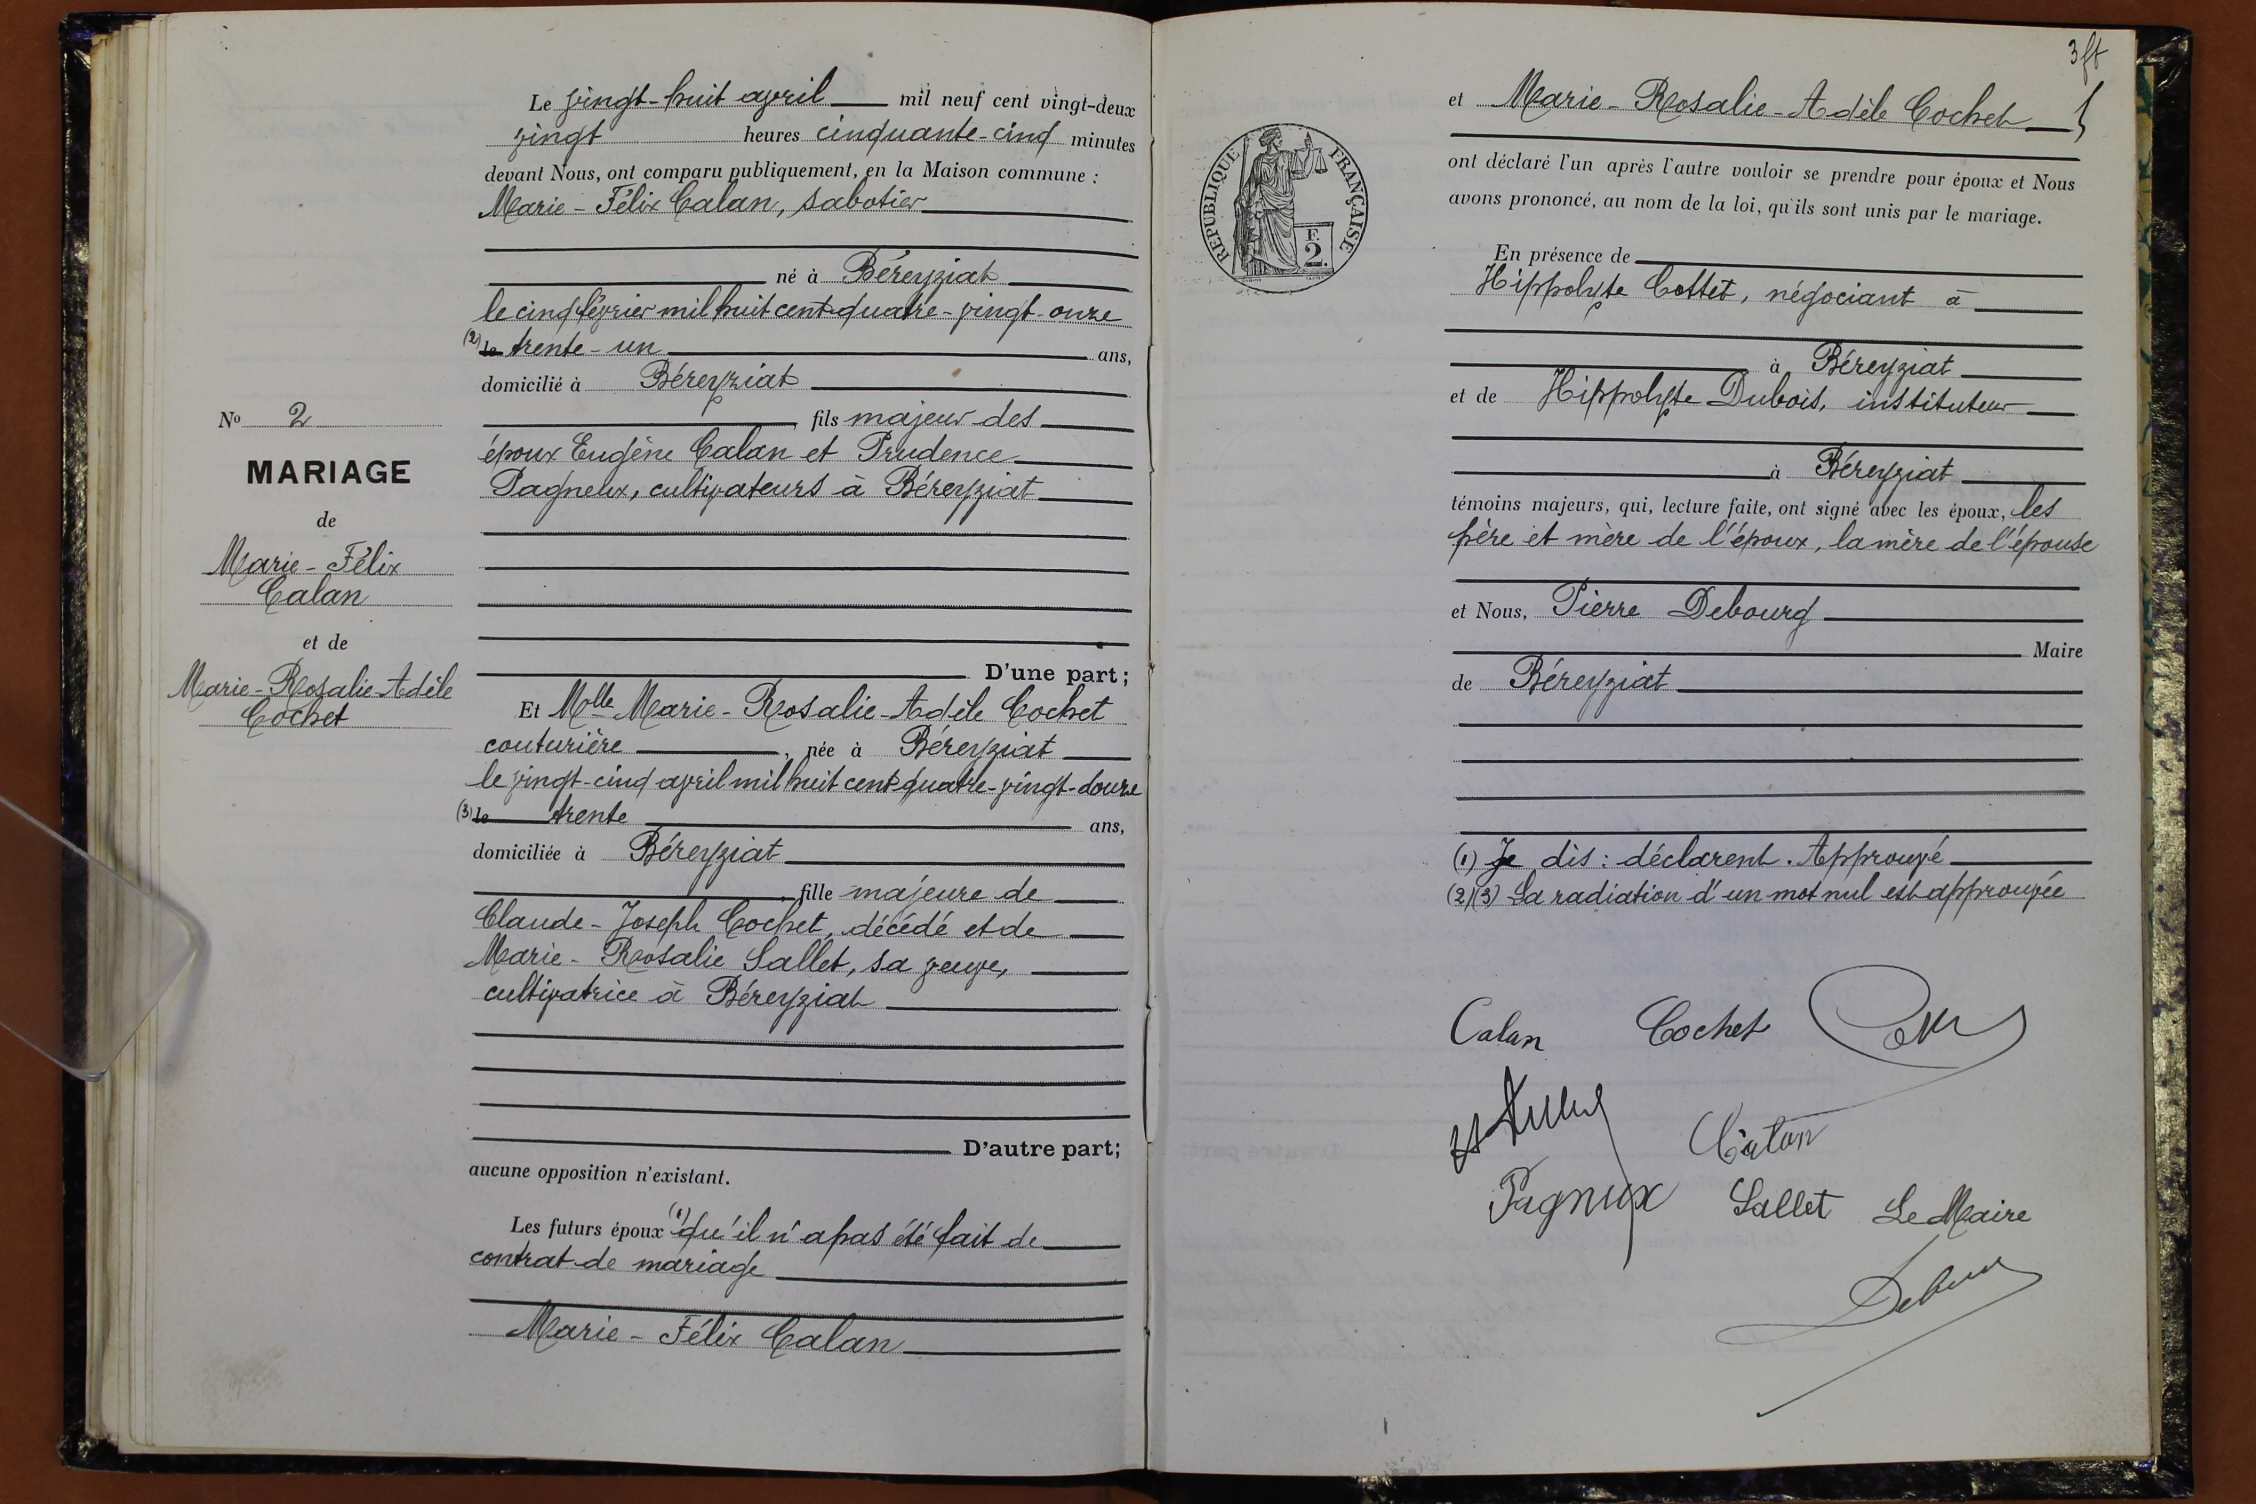 Le vingt-huit avril mil neuf cent vingt-deux
vingt heures cinquante-cinq minutes
devant Nous, ont comparu publiquement, en la Maison commune :
Marie-Félix Calan, sabotier
né à Béreyziat
le cinq février mil huit cent quatre-vingt-onze
(2) le trente-un ans,
domicilié à Béreyziat
fils majeur des
époux Eugène Calan et Prudence
Pagneux, cultivateurs à Béreyziat
D'une part;
No 2
MARIAGE
de
Marie-Félix
Calan
et de
Marie-Rosalie-Adèle
Cochet
Et Melle Marie-Rosalie-Adèle Cochet
couturière, née à Béreyziat
le vingt-cinq avril mil huit cent quatre-vingt-douze
(3) le trente ans,
domiciliée à Béreyziat
fille majeure de
Claude-Joseph Cochet, décédé et de
Marie-Rosalie Sallet, sa veuve,
cultivatrice à Béreyziat
D'autre part;
aucune opposition n'existant.
Les futurs époux (1) qu'il n'a pas été fait de
contrat de mariage
Marie-Félix Calan
3
et Marie-Rosalie-Adèle Cochet
REPUBLIQUE FRANÇAISE
F.
2.
ont déclaré l'un après l'autre vouloir se prendre pour époux et Nous
avons prononcé, au nom de la loi, qu'ils sont unis par le mariage.
En présence de
Hippolyte Cottet, négociant à
à Béreyziat
et de Hippolyte Dubois, instituteur
à Béreyziat
témoins majeurs, qui, lecture faite, ont signé avec les époux, les
père et mère de l'époux, la mère de l'épouse
et Nous, Pierre Debourg
Maire
de Béreyziat
(1) Je dis : déclarent. Approuvé
(2)(3) La radiation d'un mot nul est approuvée
Calan Cochet
Calan
Pagneux Sallet Le Maire